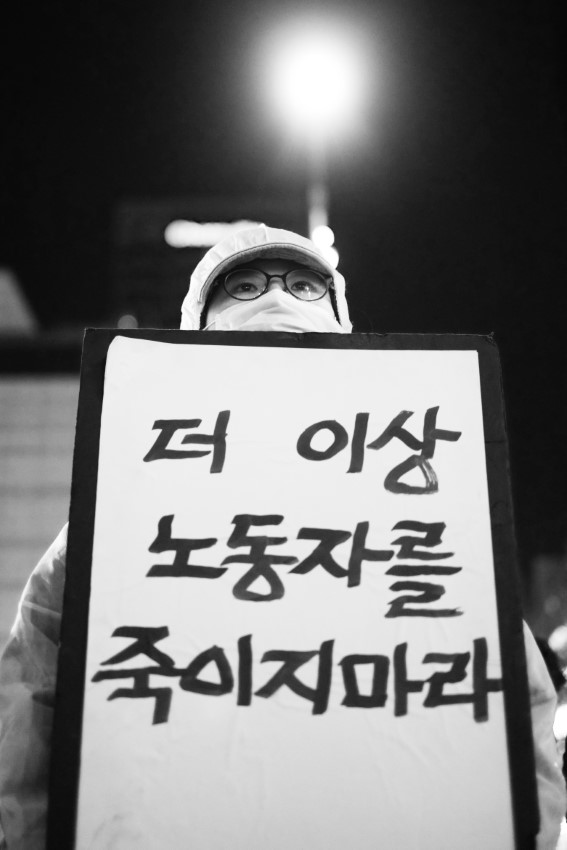 더 이상
노동자를
죽이지마라